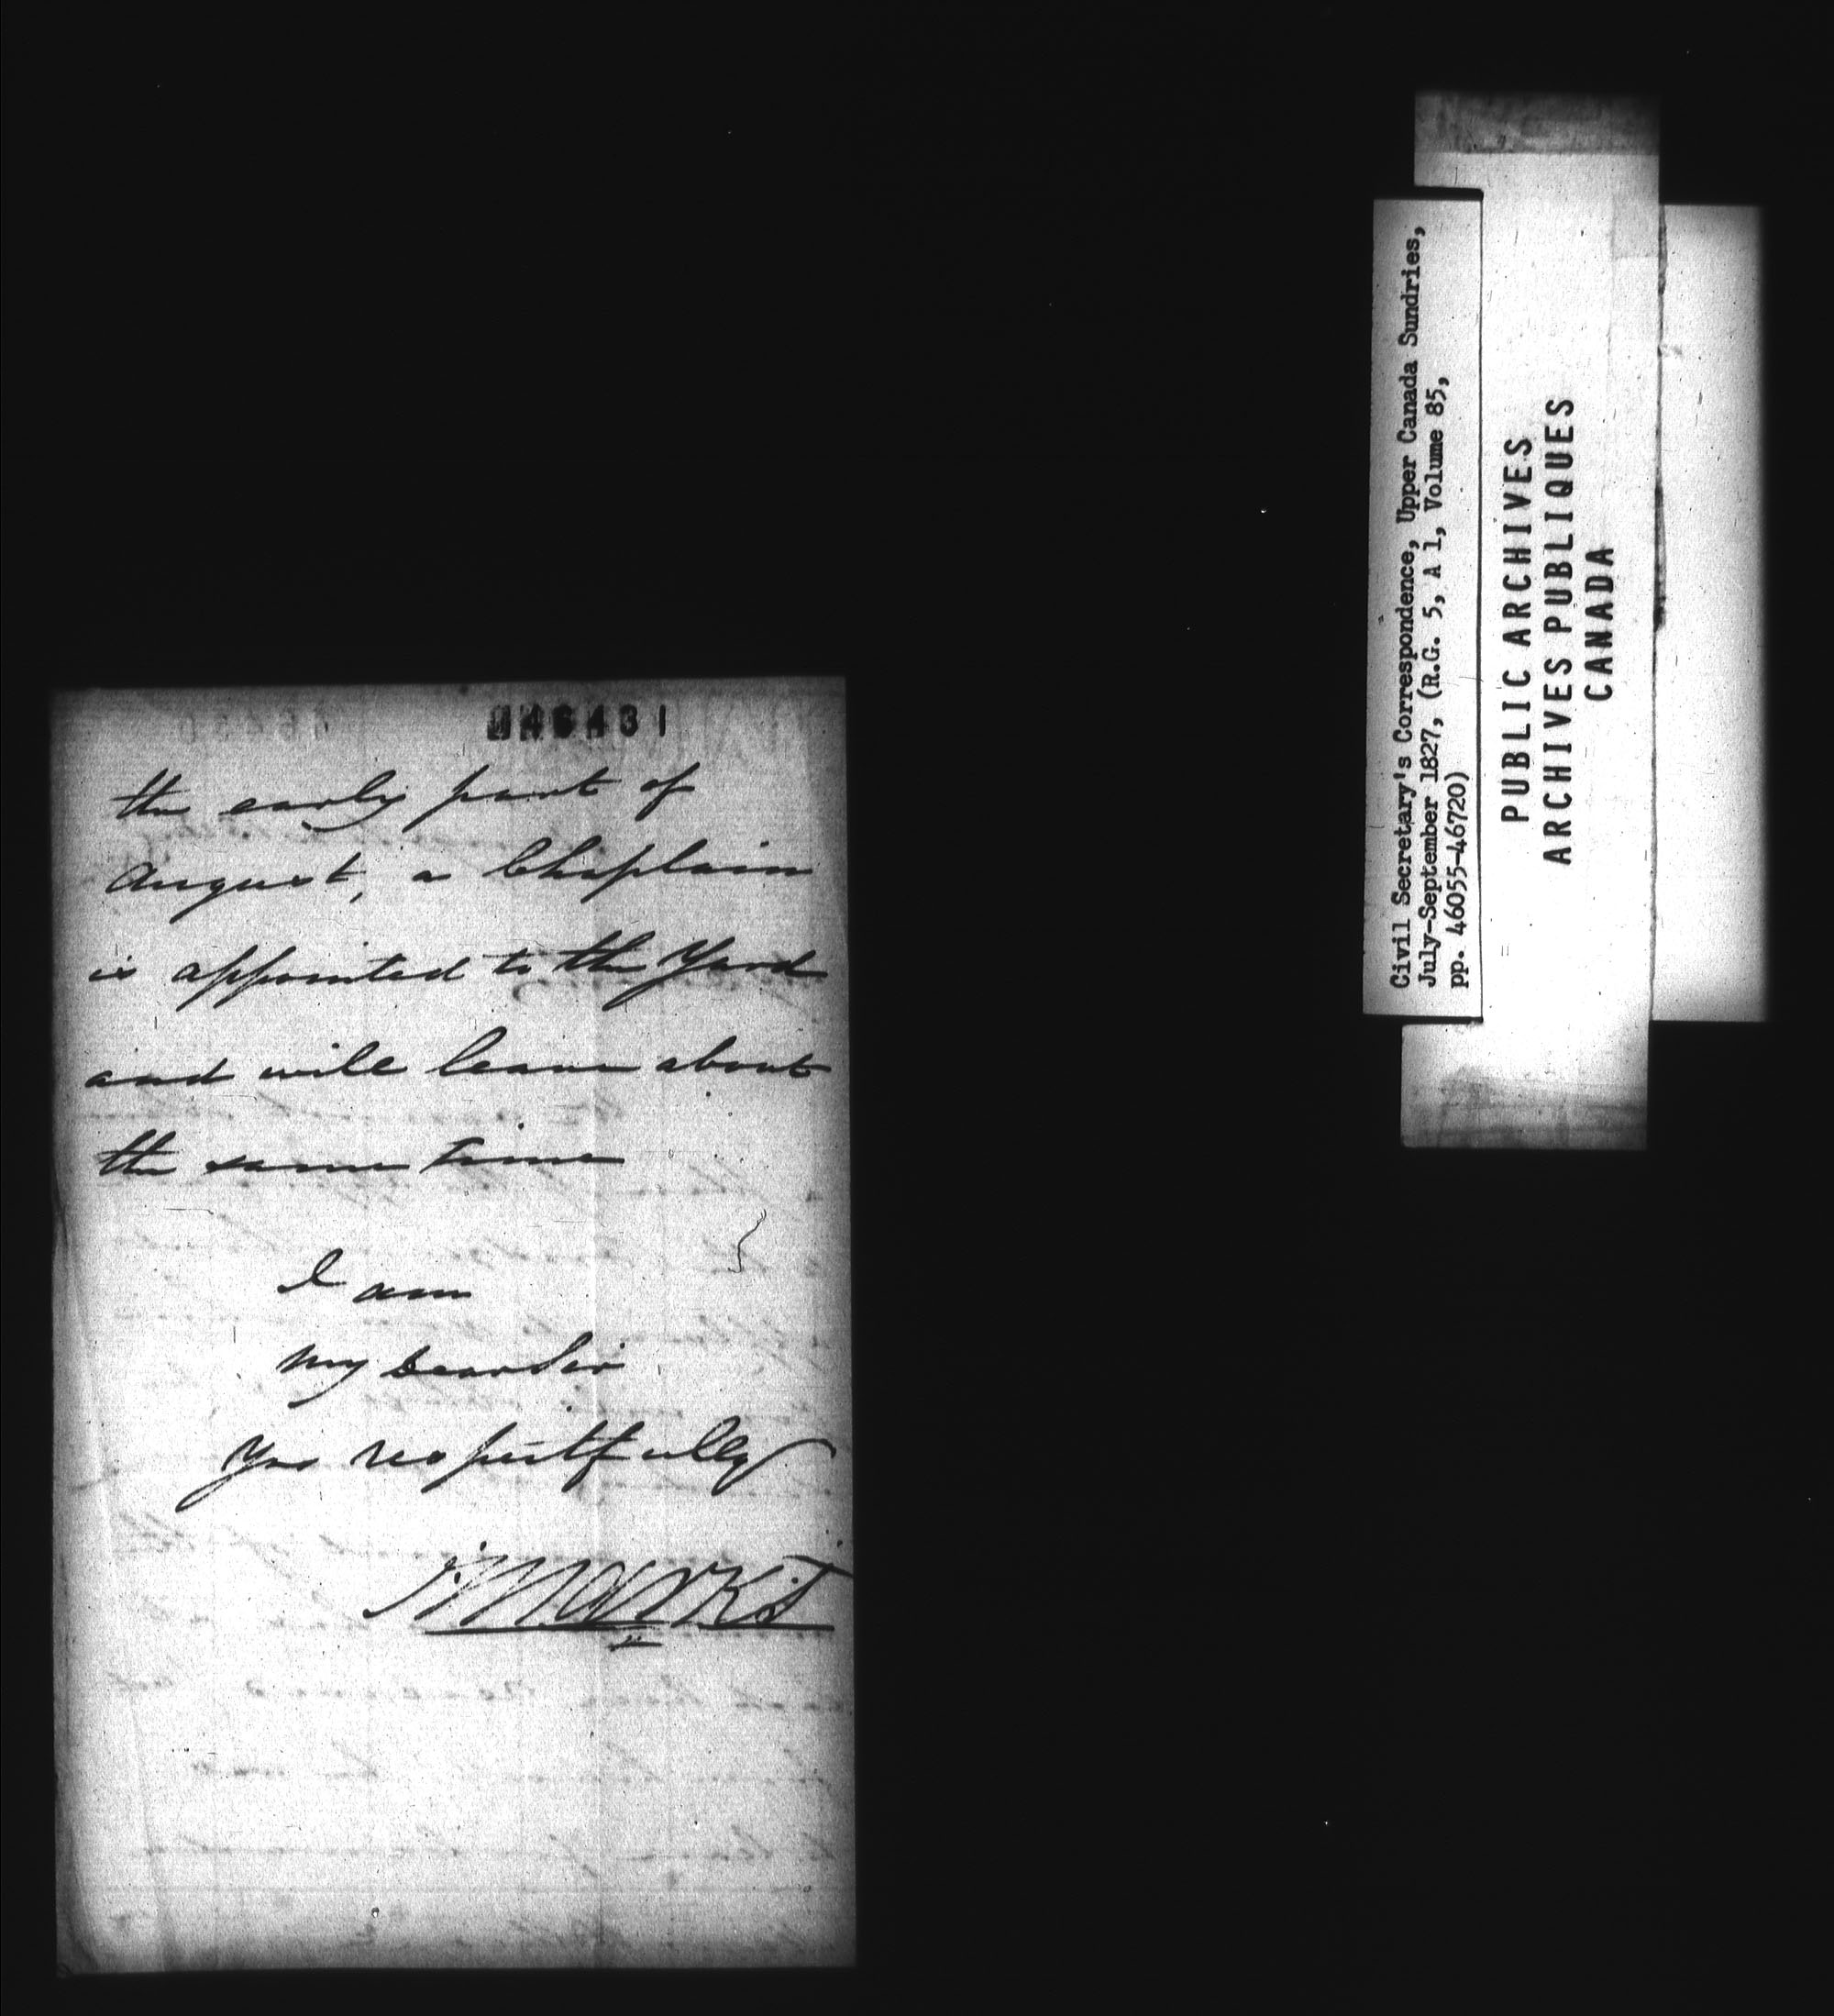 46431
the early part of
August, a Chaplain
is appointed to the Yard
and will leave about
the same time
I am
my dear Sir
Yrs respectfully
Marks
Civil Secretary's Correspondence, Upper Canada Sundries,
July-September 1827, (R.G. 5, A 1, Volume 85,
pp. 46055-46720)
PUBLIC ARCHIVES
ARCHIVES PUBLIQUES
CANADA